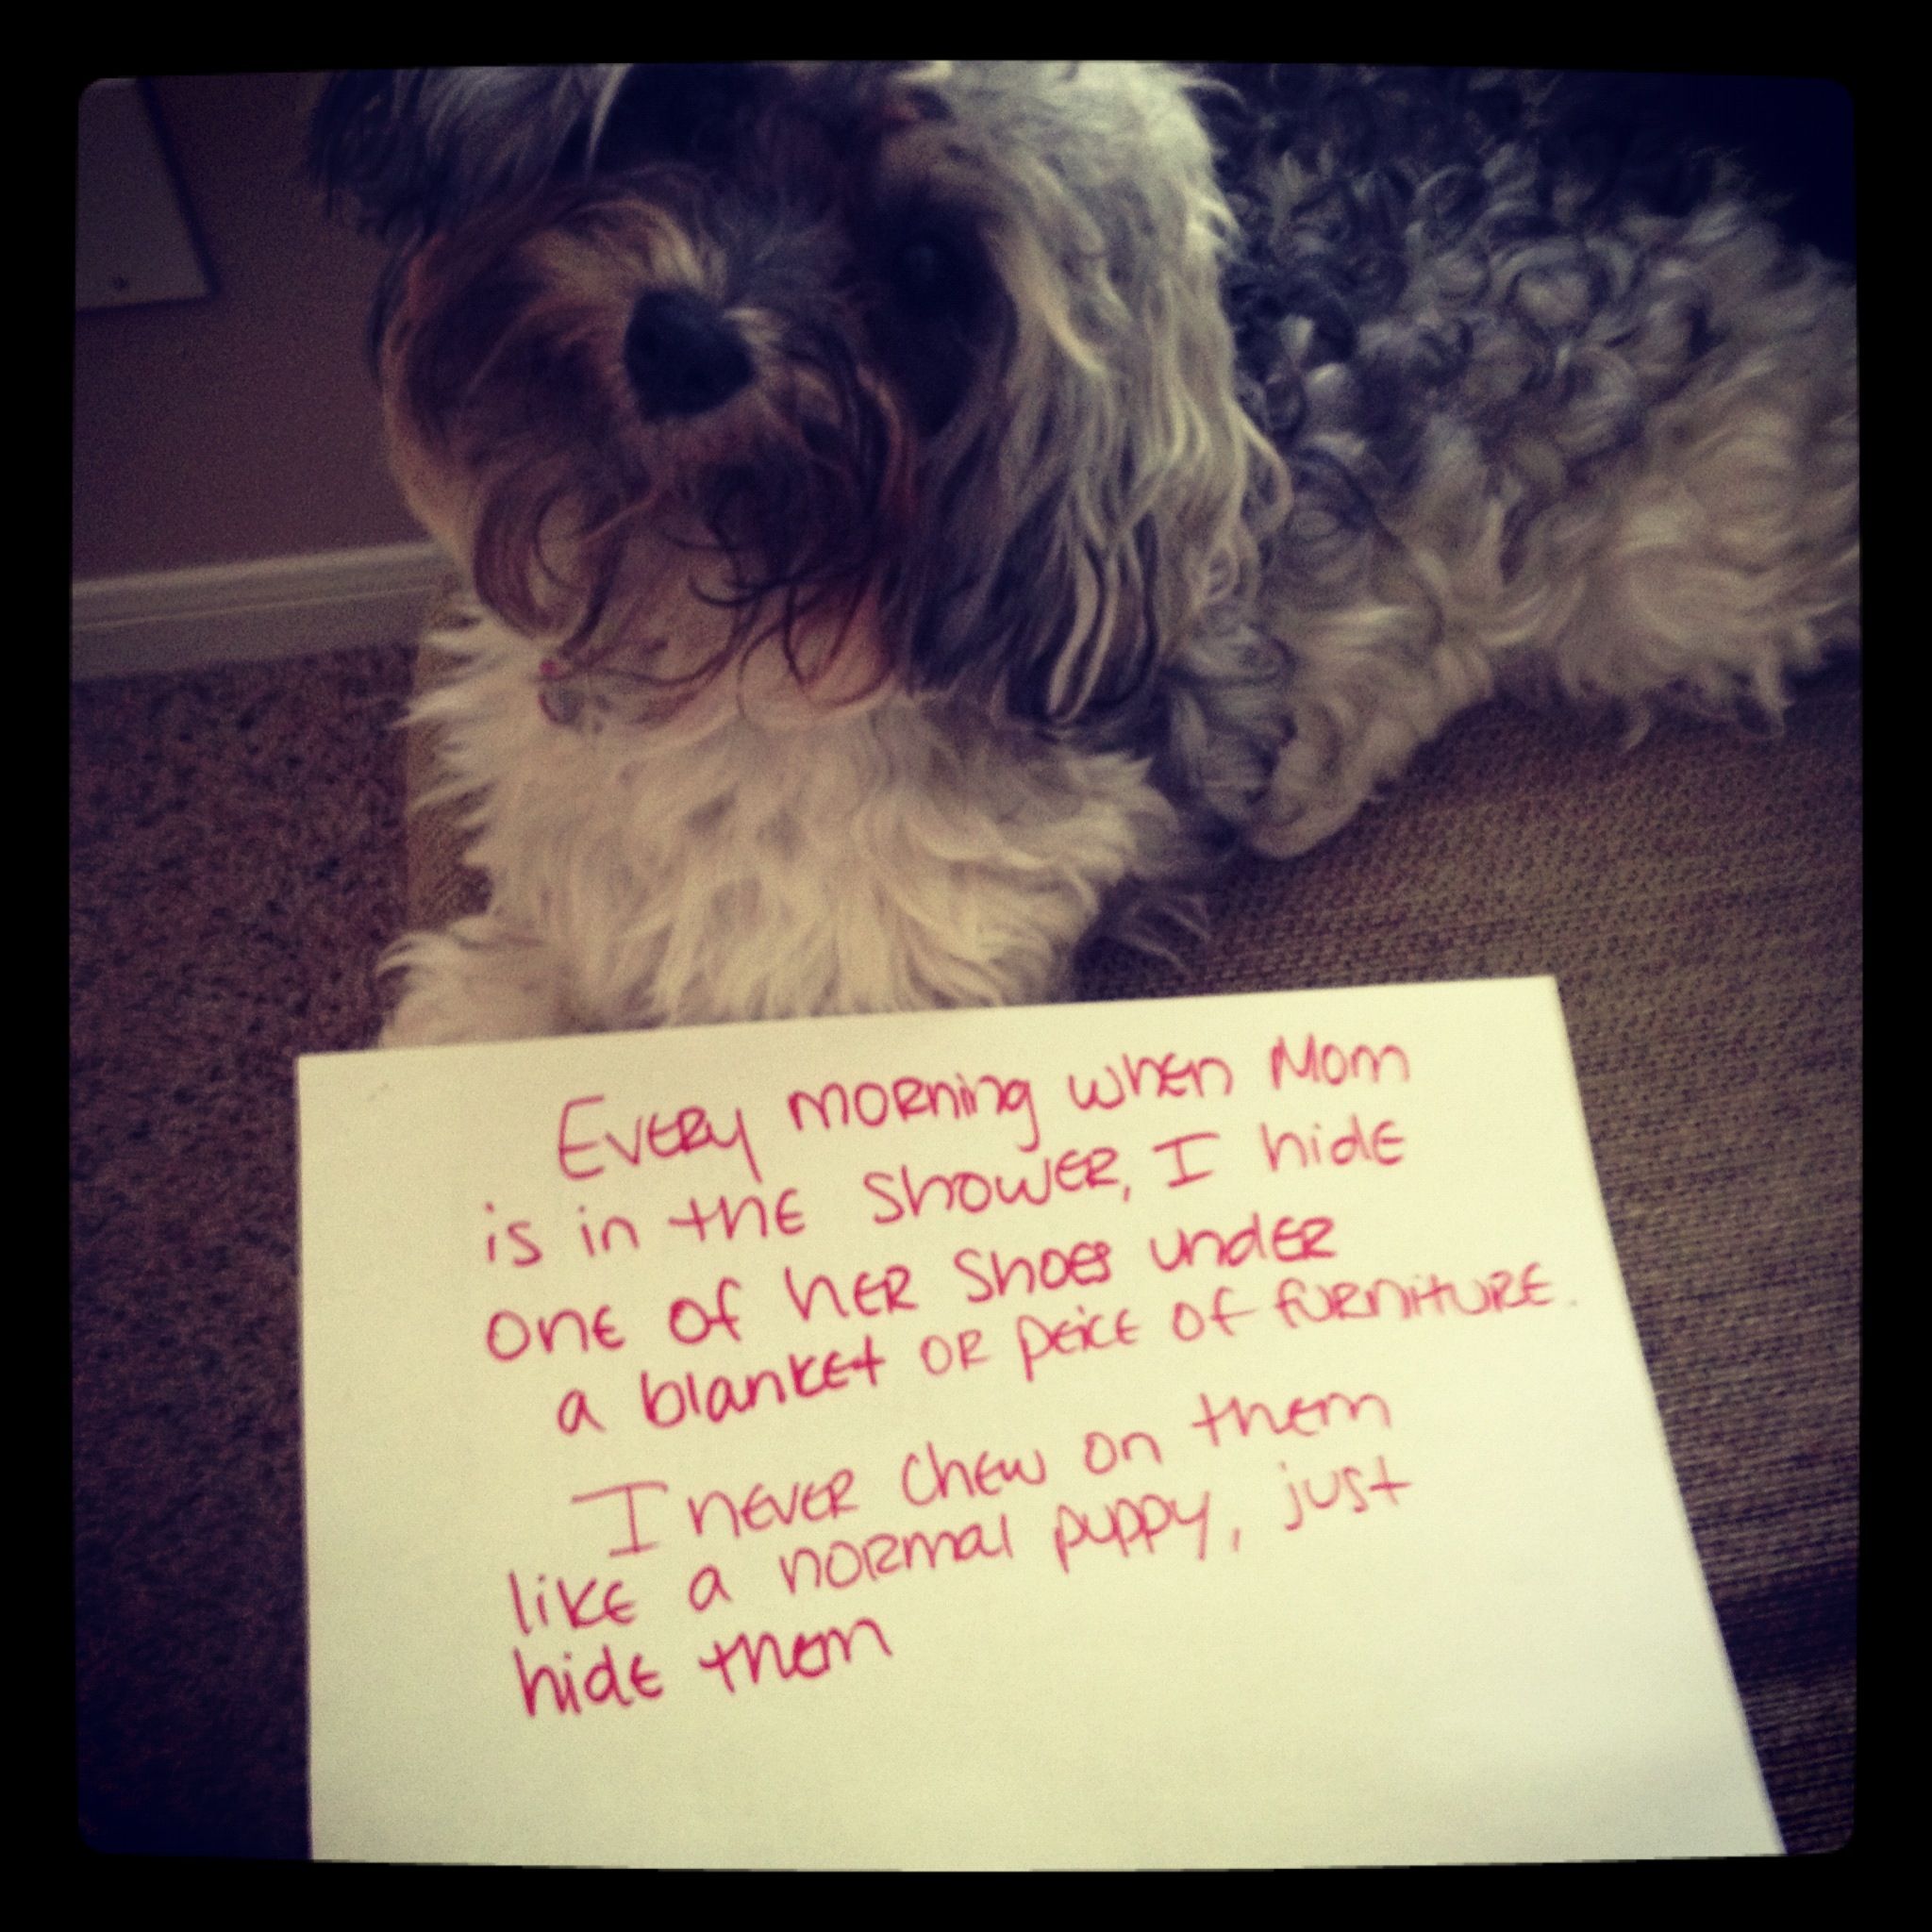 Every morning when Mom
is in the shower, I hide
one of her shoes under
a blanket or peice of furniture.
I never chew on them
like a normal puppy, just
hide them